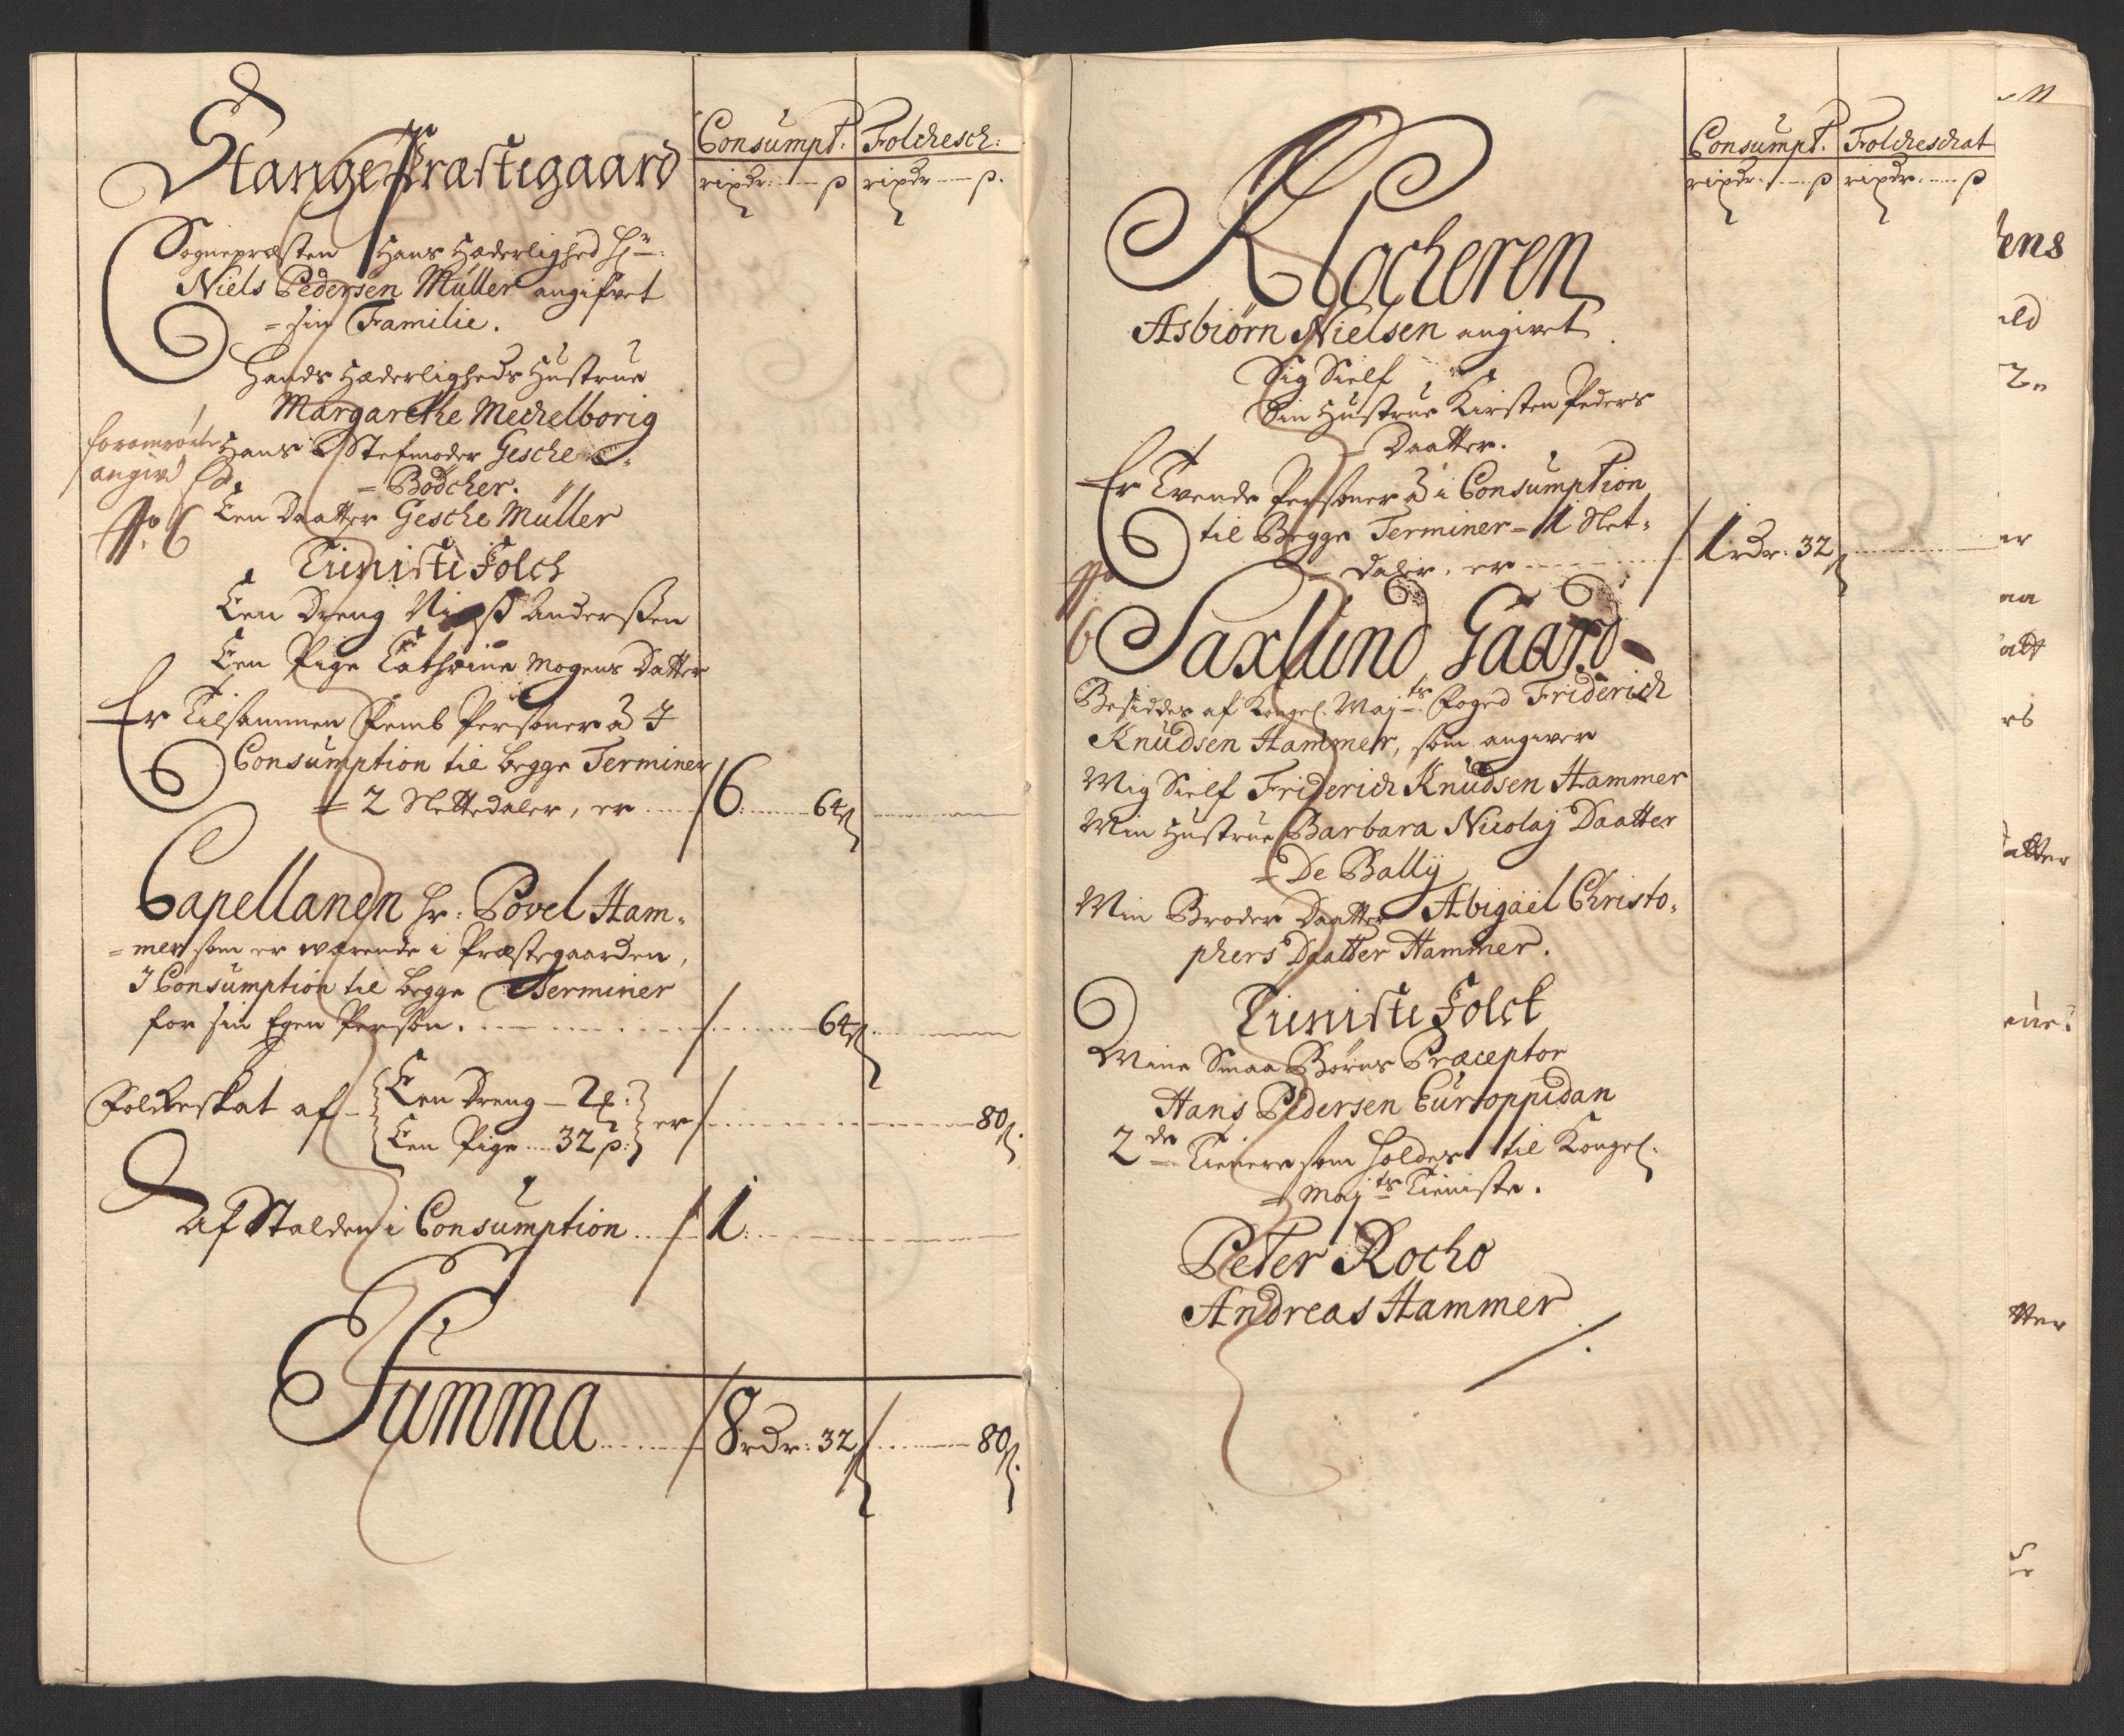 Consumpt. Folchesch:
StangePræstegaard
rixdr: ß rixdr ß.
Sognepræsten Hans Hæderlighed Hr:
Niels Pedersen Müller angifvet
= sin Familie.
Hands Hæderligheds Hustrue
Margarethe Mechelborig
Hans Stefmoder Gesche
angivd
= Bödcher.
Een Daatter Gesche Müller
Tieniste Folch
Een Dreng Anderssen
Een Pige Cathrine Mogens Datter
Er Tilsammen Femb Personer à 3
Consumption til begge Terminer
= 2 Slettedaler, er 6 64
Capellanen Hr: Povel Ham=
= mer som er værende i Præstegaarden,
I Consumption til begge Terminer
for sin Egen Person. 64
Folckeskat af Een Dreng
Een Pige 32 ß: er 80
Af Stalden i Consumption 1
Summa 8 rdr: 32 80
Consumpt. Folcheschat
rixdr. ß rixdr. ß
Klocheren
Asbiörn Nielsen angivet
Sig Sielf
Sin Hustrue Kirsten Peders
Daatter.
Er Tvende Personer à i Consumption
til Begge Terminer = 1 Slet=
= daler, er 1 rdr: 32
Saxlund Gaard
Besiddes af Kongel. Majts. Foged Friderich
Knudsen Hammer, som angiver
Mig Sielf Friderich Knudsen Hammer
Min Hustrue Barbara Nicolaj Daatter
= De Bally
Min Broder Daatter Abigael Christo=
phers Daatter Hammer.
Tieniste Folck
Mine Smaa Børns Præceptor
Hans Pedersen Europpidan
2de Tienere som holdes til Kongel.
= Majts Tieniste.
Peter Rocho
Andreas Hammer